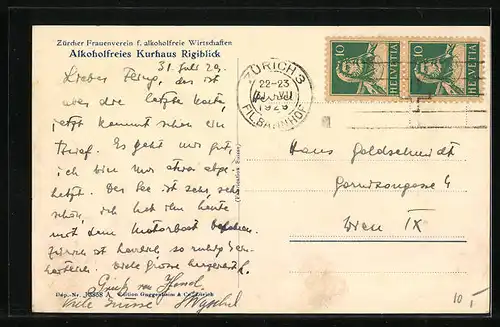 Zürcher Frauenverein f. alkoholfreie Wirtschaften
Alkoholfreies Kurhaus Rigiblick
31. Juli 29.
Lieber das ist
aber die letzte Karte,
jetzt kommt schon ein
Brief. Es geht mir gut,
ich bin nur etwas abge-
hetzt. Der See ist sehr, sehr
schön, ich hab ihn heute
mit dem Motorboot befahren.
Zürich ist herrlich, so ruhig &
Viele Grüsse
Gruß von
Viele Grüsse
Dép.-Nr. A Edition Guggenheim & Co., Zürich
ZÜRICH 3
22-23
VII
1929
FIL. BAHNHOF
10
HELVETIA
10
HELVETIA
Hans Goldschmidt
Garnisongasse 4
Wien IX
10.-